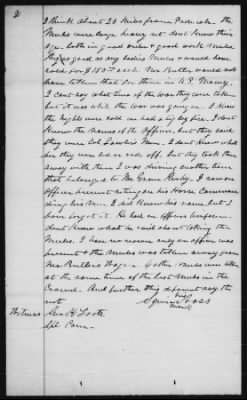 2
I think about 20 Miles from Paducah. The
Mules were large heavy not don't know their
age. both in good order & good work mules
They as good as any Ladies Mules & would have
sold for $150 each Mr Butler would not
have taken that for them in U.S. Money
I can't say what time of the War they were taken
but it was while the war was going on. I know
the nights were cold we had a big log fire. I don't
know the names of the Officers, but they said
they were Col men. I don't know what
he they was led or rode off, but they took them
away with them I was driving another team
that belonged to Mr Green Ruby. I saw an
officer present setting on his Horse Comman
ding his Men. I did know his name but I
have forgot it. He had on officers uniform.
dont know what he said about taking the
Mules. I have no reason only an officer was
present & the Mules was taken away from
Mr Butlers Wagon. 4 other mules were taken
at the same time of the best Mules in the
Crowd. And further this deponent says the
not
Squire his Foss
mark
Witness Jno H Foote
Spl Com